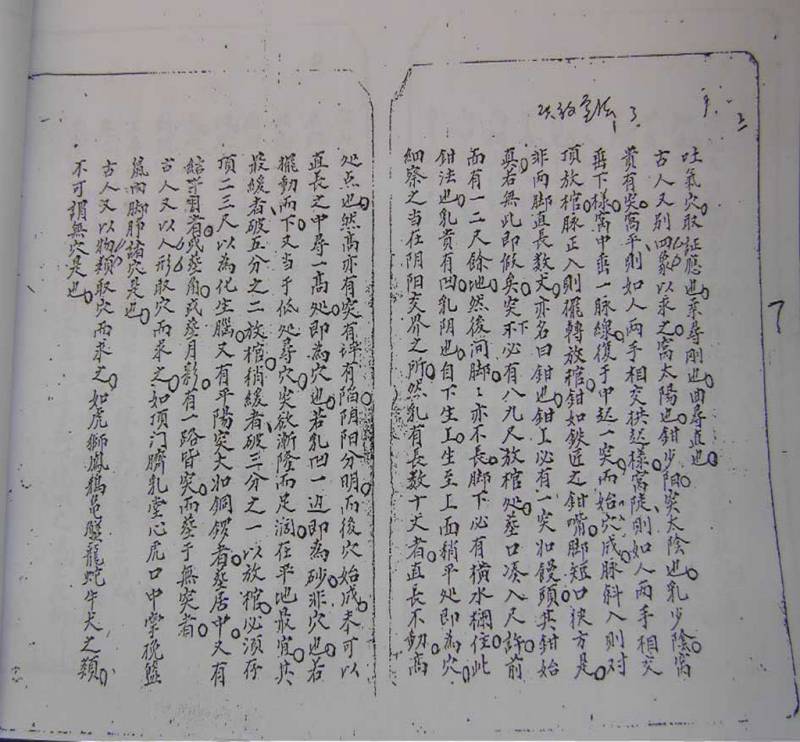 吐氣穴取证應也柔尋剛也曲尋直也
古人又别四象以求之窩太陽也鉗少阳突太陰也乳少陰窩
貴有突窩平則如人两手相交拱起樣窩陡則如人两手相交
垂下樣窩中垂一脉線復于中起一突而始穴成脉斜入則对
頂放棺脉正入則擺轉放棺鉗如鉄匠之鉗嘴脚短口狭方是
非两脚直長数丈亦名曰鉗也鉗上必有一突如饅頭其鉗始
真若無此即假矣突下不必有八九尺放棺处塟口凑入尺許前
而有一二尺餘地然後间脚亦不長脚下必有横水欄住此
鉗法也乳貴有凹乳阴也自下生上生至上面稍平处即為穴
細察之当在阴阳交界之所然乳有長数十丈者直長不動高
处点也然高亦有突有坪有陷阴阳分明而後穴始成未可以
直長之中尋一高处即為穴也若乳凹一边即為砂非穴也若
擺動而下又当于低处尋穴突欲漸隆而足濶在平地最宜其
最緩者破五分之二放棺稍緩者破三分之一以放棺必須存
頂二三尺以為化生腦又有平陽突大如銅鑼者塟居中又有
者或塟角或塟月影有一路皆突而塟于無突者
古人又以人形取穴而求之如頂门臍乳堂心虎口中掌
两脚諸穴是也
古人又以物類取穴而求之如虎獅鳳鵝黽蟹龍蛇牛犬之類
不可謂無穴是也